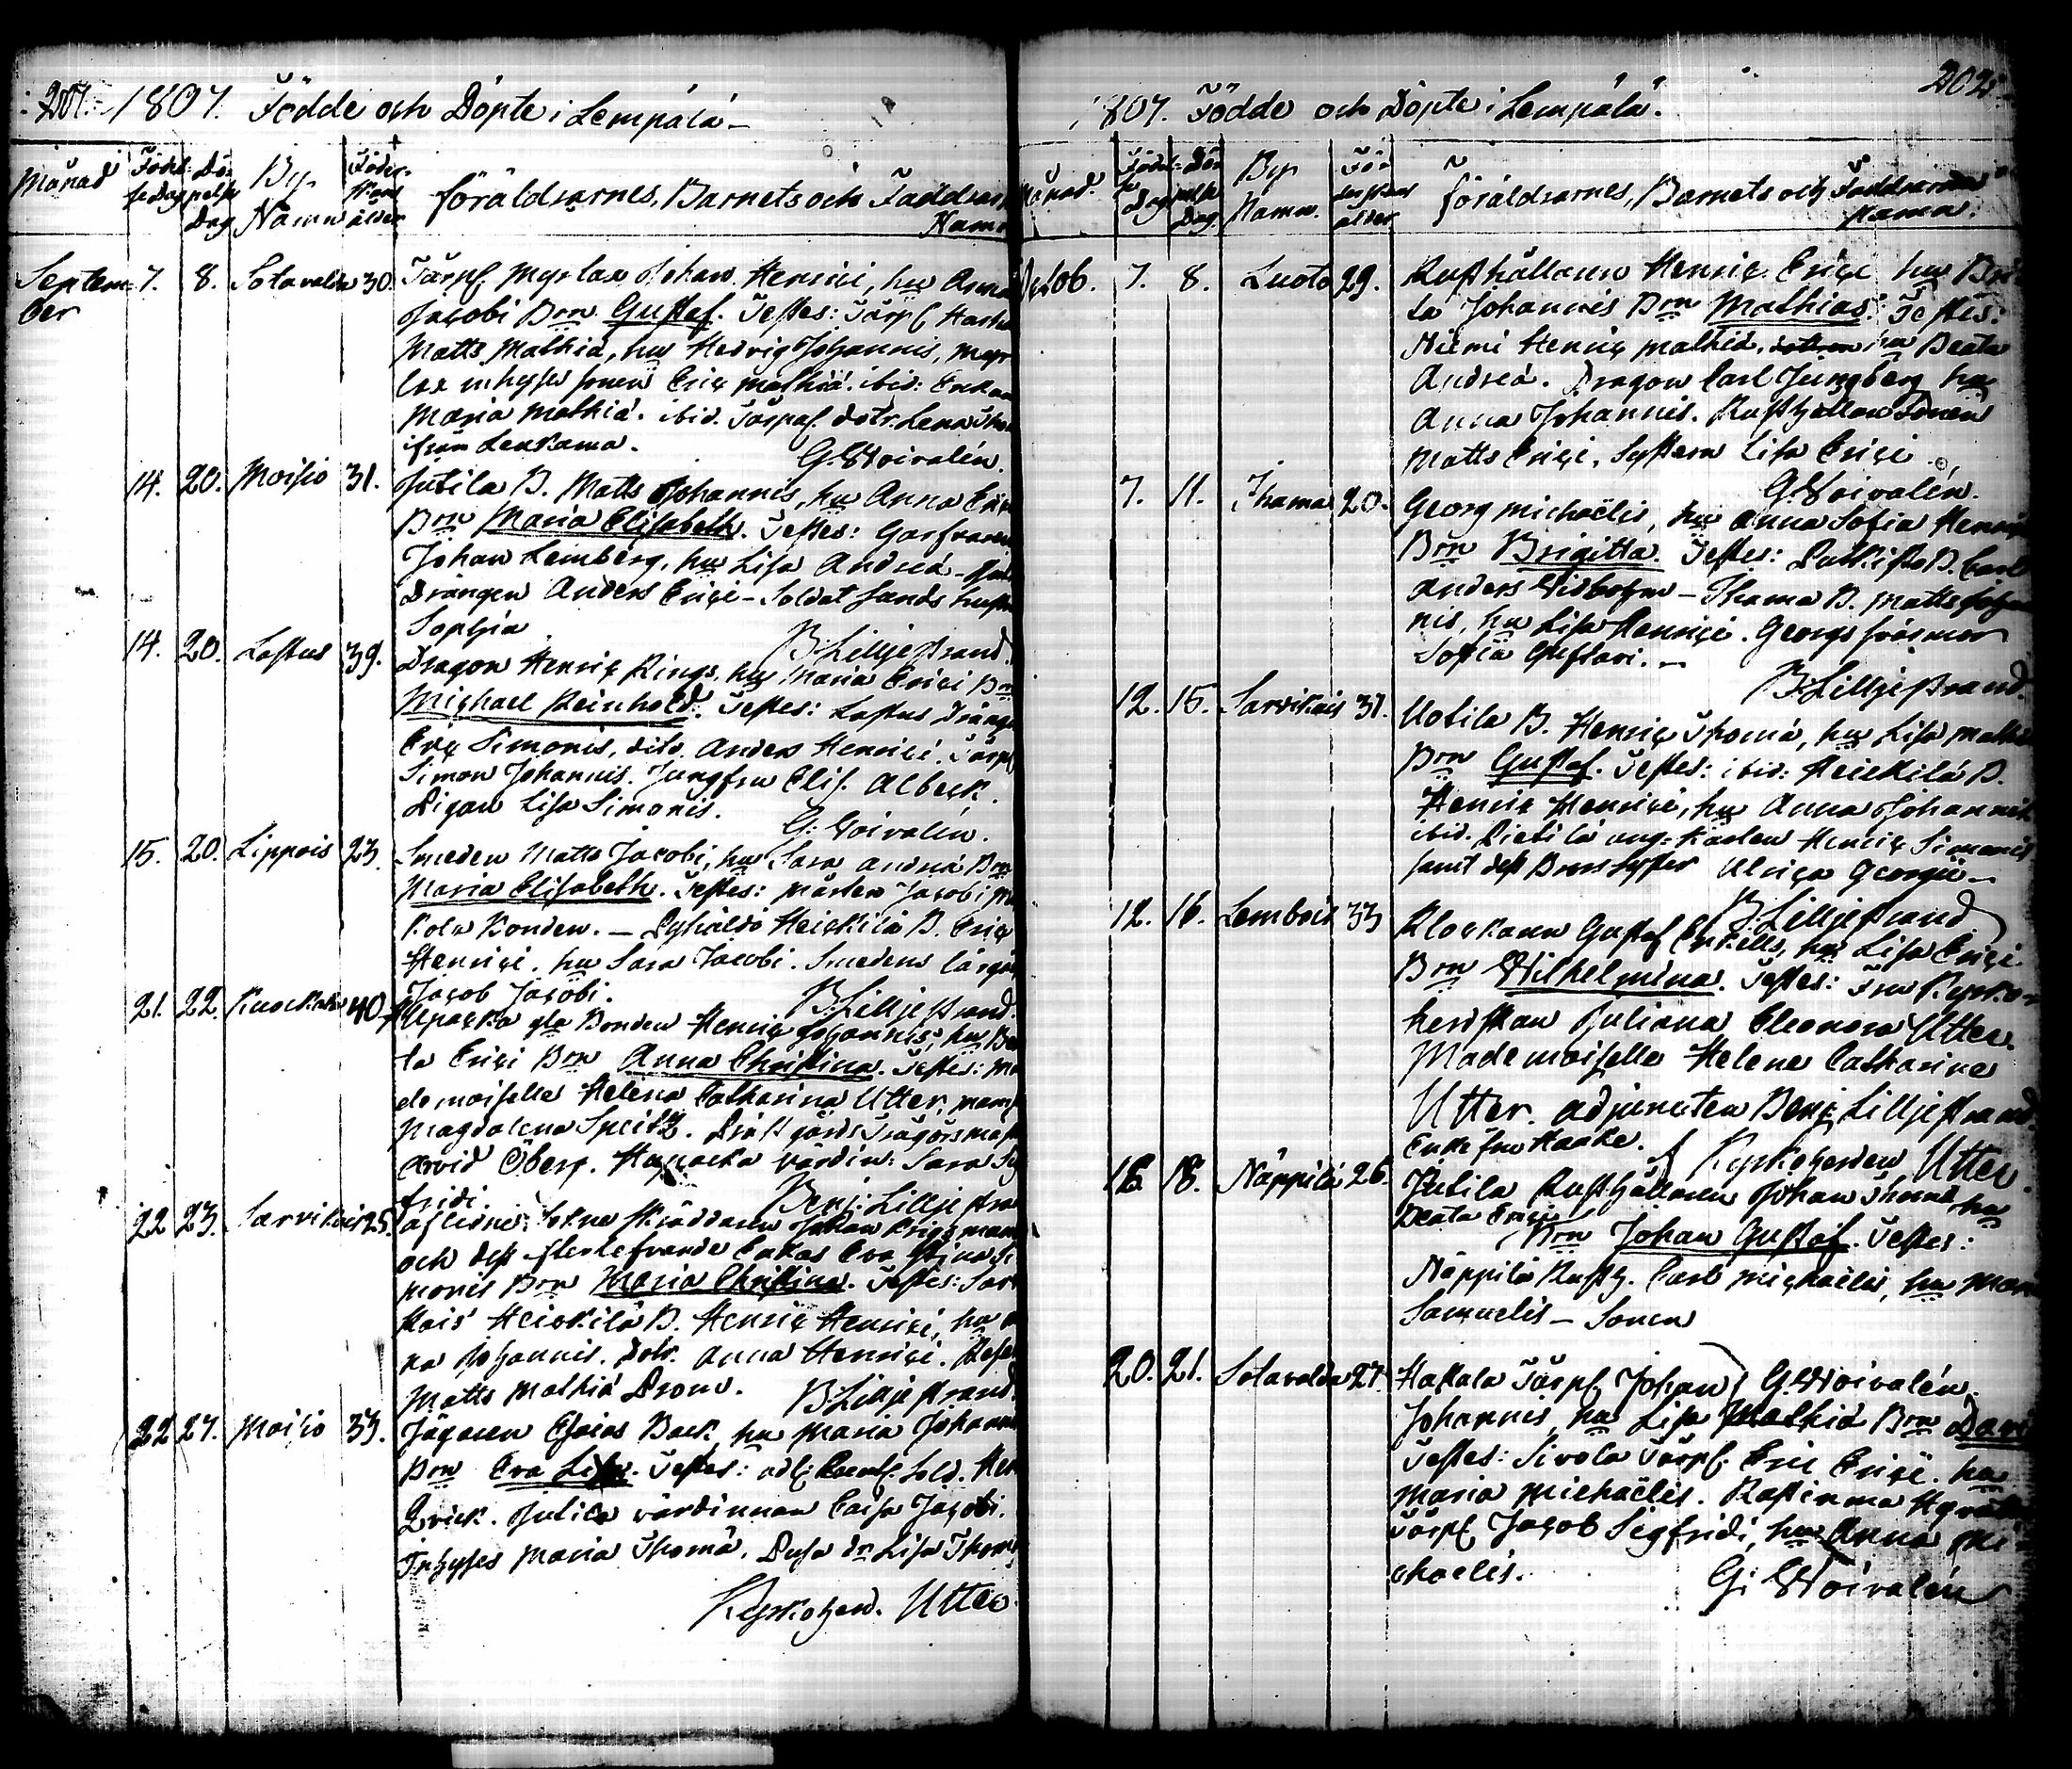 201. 1807. Födde och Döpte i Lempälä
Månad Födel-se Dag Döpelse Dag By Namn Föderskans ålder föräldrarnes, Barnets och Faddrar Namn
Septem-ber 7. 8. Sotavalda 30. Torp. Myrlax Johan Henrici, hu Anna
Jacobi Brn Gustaf. Testes: Torp.
Matts Mathiä, hu Hedvig Johannis, Myr
lax inhyses sonen Eric Mathiä. ibid: Enkan
Maria Mathiä. ibid. Torpaf. dotr. Lena
ifrån Leukama. G. Woivalén.
14. 20. Moisio 31. Jutila B. Matts Johannis, hu Anna Eric
Brn Maria Elisabeth. Testes: Garfvaren
Johan Lemberg, hu Lisa Andreä
Drängen Anders Erici - Soldat Sands hustru
Sophia B. Lilljestrand.
14. 20. Lastus 39. Dragon Henric Rings, hu Maria Erici Brn
Michael Reinhold. Testes: Lastus Dräng
Eric Simonis, dito Anders Henrici. Torp
Simon Johannis. Jungfru Elis. Albeck.
Pigan Lisa Simonis. G. Woivalén.
15. 20. Lippois 23. Smeden Matts Jacobi, hu Sara Andreä Brn
Maria Elisabeth. Testes: Mårten Jacobi
Kola Bonden. — Heickilä B. Eric
Henrici. hu Sara Jacobi. Smedens lärg
Jacob Jacobi. B. Lilljestrand.
21. 22. 40. gla Bonden Henric Johannis, hu
ta Erici Brn Anna Christina. Testes: Ma
demoiselle Helena Catharina Utter, mams
Magdalena Speitz. Trägårsmäst
Arvid Öberg. värdin: Sara Sig
fridi Benj: Lilljestra
22 23. Sarvikais 25. aflidne Sokne Skräddaren Johan
och dess efterlefvande Enkas Eva Stina Si
monis Brn Maria Christina. Testes: Sarvi
kais Heickilä B. Henric Henrici, hu An
na Johannis. dotr. Anna Henrici.
Matts Mathiä B. Lilljestrand.
22 27. Moisio 33. Jägaren Esaias Back, hu Maria Johannis
Brn Eva Lisa. Testes: Sold. Hen
Qvick. Jutila värdinnan Caisa Jacobi.
Inhyses Maria Thomä. dr Lisa Thom
Kyrkoherd. Utter
202.
1807. Födde och Döpte i Lempälä.
Månad. Födelse Dag Döpelse Dag. By Namn. Föderskans ålder föräldrarnes, Barnets och Faddrarnes Namn.
Octob. 7. 8. Luoto 29. Rusthållaren Henric Erici hu Bri
ta Johannis Brn Mathias. Testes:
Niemi Henric Mathiä, hu Beata
Andreä. Dragon Carl Jungberg hu
Anna Johannis. Rusthållare Sonen
Matts Erici, Systern Lisa Erici
G. Woivalén.
7. 11. Thama 20. Georg Michaëlis, hu Anna Sofia Henrici
Brn Brigitta. Testes: B. Carl
Anders Widbohm — Thama B. Matts Johan
nis, hu Lisa Henrici. Georgs svärmor
Sofia Gustavi. —
B. Lilljestrand.
12. 15. Sarvikais 31. Uotila B. Henric Thomä, hu Lisa Mathiä
Brn Gustaf. Testes: ibid: Heickilä B.
Henric Henrici, hu Anna Johannis
ibid. Pietilä ung-Karlen Henric Simonis
samt dess Syster Ulrica Georgii —
B. Lilljestrand
12. 16. Lembois 33 Klockaren Gustaf Enkells, hu Lisa Erici.
Brn Wilhelmina. Testes: Fru Kyrko-
herdskan Juliana Eleonora Utter.
Mademoiselle Helene Catharine
Utter. adjuncten Benj. Lilljestrand.
Enkefru Haake. Kyrkoherden Utter.
16. 18. Näppilä 26. Jutila Rusthållaren Johan Thomä hu
Beata Erici
Brn Johan Gustaf. Testes:
Näppilä Rusth. Carl Michaëlis, hu Maria
Samuelis — Sonen
20. 21. Sotavalda 27. Hakala Torp. Johan G. Woivalén.
Johannis, hu Lisa Mathiä Brn David
Testes: Sivola Torp. Eric Erici. hu
Maria Michaëlis.
Torp. Jacob Sigfridi, hu Anna Mi-
chaelis. G: Woivalén